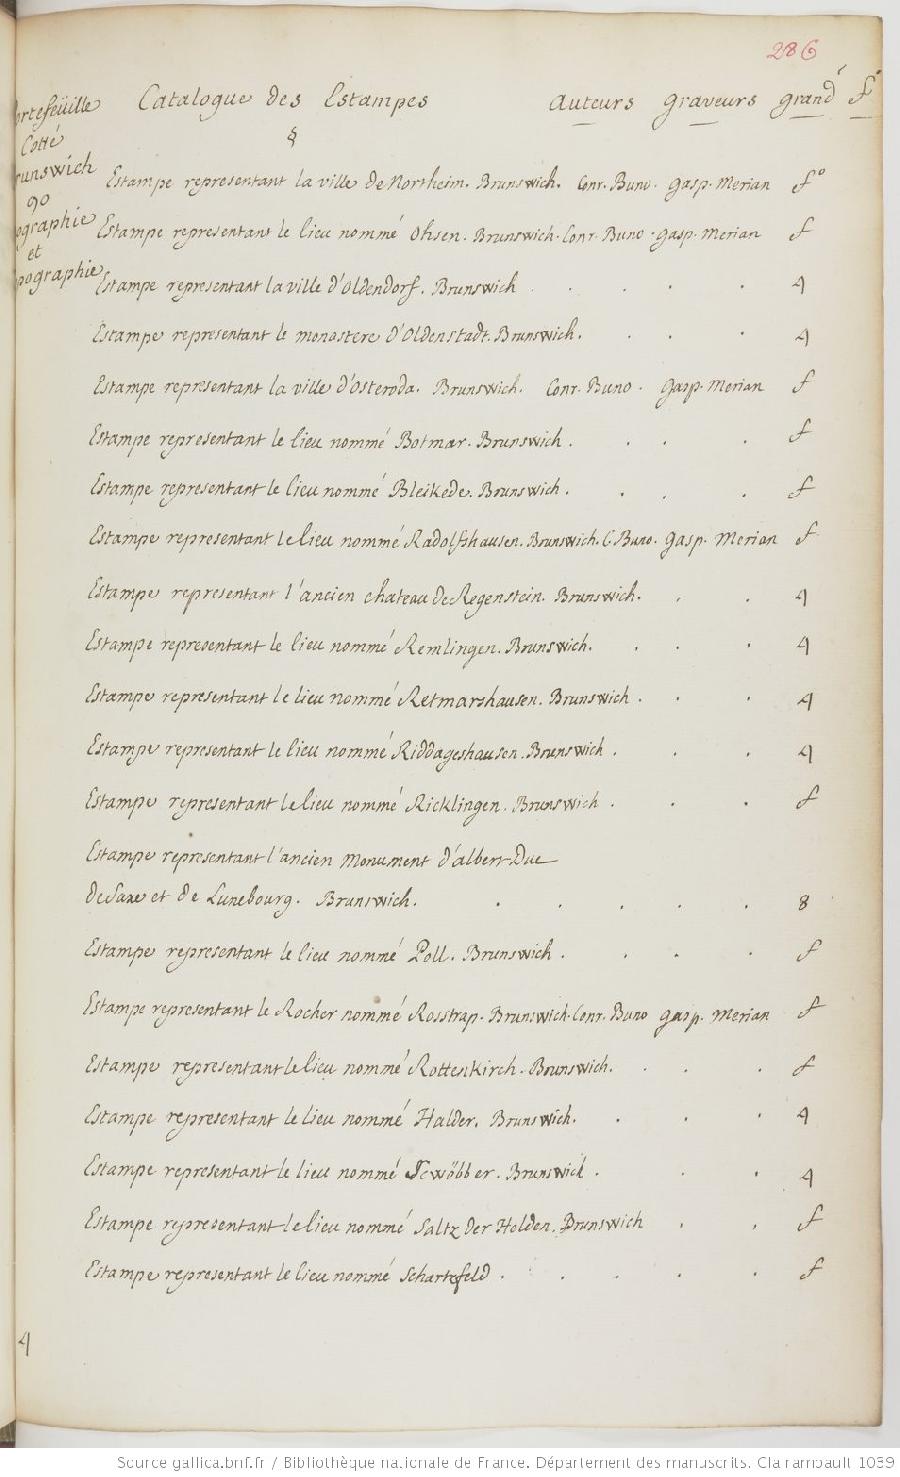 286
Catalogue des Estampes auteurs graveurs grand.r f.o
§
ortefeüille
Cotté
runswich
90
ographie
et
pographie
Estampe representant la ville de Northeim. Brunswich. Conr. Buno. Gasp. Merian f.o
Estampe representant le lieu nommé Ohsen. Brunswich. Conr. Buno. Gasp. Merian f
Estampe representant la ville d'Oldendorf. Brunswich . . . . 4
Estampe representant le monastere d'Oldenstadt. Brunswich. . . . 4
Estampe representant la ville d'Osteroda. Brunswich. Conr. Buno. Gasp. Merian f
Estampe representant le lieu nommé Botmar. Brunswich . . . . f
Estampe representant le lieu nommé Bleikede. Brunswich. . . . f
Estampe representant le lieu nommé Radolfshausen. Brunswich. C. Buno. Gasp. Merian f
Estampe representant l'ancien chateau de Regenstein. Brunswich. . . 4
Estampe representant le lieu nommé Remlingen. Brunswich. . . . 4
Estampe representant le lieu nommé Retmarshausen. Brunswich . . . 4
Estampe representant le lieu nommé Riddageshausen. Brunswich . . . 4
Estampe representant le lieu nommé Ricklingen. Brunswich . . . f
Estampe representant l'ancien monument d'albert Duc
de Saxe et de Lunebourg. Brunswich. . . . . . 8
Estampe representant le lieu nommé Poll. Brunswich . . . . f
Estampe representant le Rocher nommé Rosstrap. Brunswich. Conr. Buno Gasp. Merian f
Estampe representant le lieu nommé Rottenkirch. Brunswich. . . . f
Estampe representant le lieu nommé Halder. Brunswich. . . . 4
Estampe representant le lieu nommé Scwöbber. Brunswich . . . 4
Estampe representant le lieu nommé Saltz der Helden. Brunswich . . f
Estampe representant le lieu nommé Schartzfeld . . . . . f
4
Source gallica.bnf.fr / Bibliothèque nationale de France. Département des manuscrits. Clairambault 1039